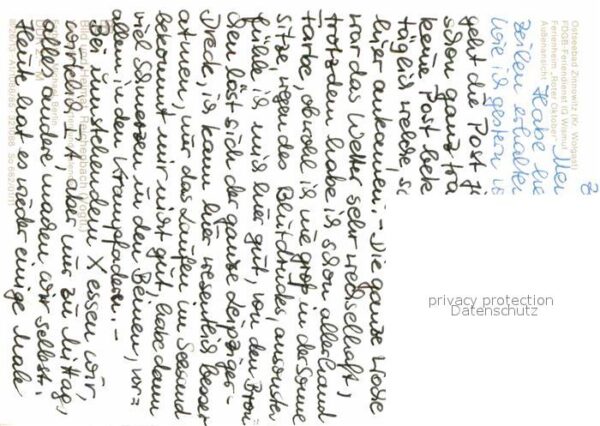 Z
Mei
Habe
Zeilen erhalten
wie ich gestern
geht die Post j
schon ganz tra
keine Post bek
täglich welche, sc
hier ankamen. - Die ganze Woche
war das Wetter sehr wechselhaft,
trotzdem habe ich schon allerhand
Farbe, obwohl ich nie groß in der Sonne
sitze, wegen des Blutdrucks, ansonsten
fühle ich mich hier gut, von den Bron=
chen löst sich der ganze Leipziger-
Dreck, ich kann hier wesentlich besser
atmen, nur das Laufen im Seesand
bekommt mir nicht gut, habe dann
viel Schmerzen in den Beinen, vor=
allem in den Krampfadern. -
Bei X X essen wir
aber nur zu Mittag,
alles andere machen wir selbst.
Heute hat es wieder einige Male
Ostseebad Zinnowitz (Kr. Wolgast)
FDGB-Feriendienst IG Wismut
Ferienheim „Roter Oktober"
Außenansicht
Bild und Heimat Reichenbach (Vogtl)
privacy protection
Datenschutz